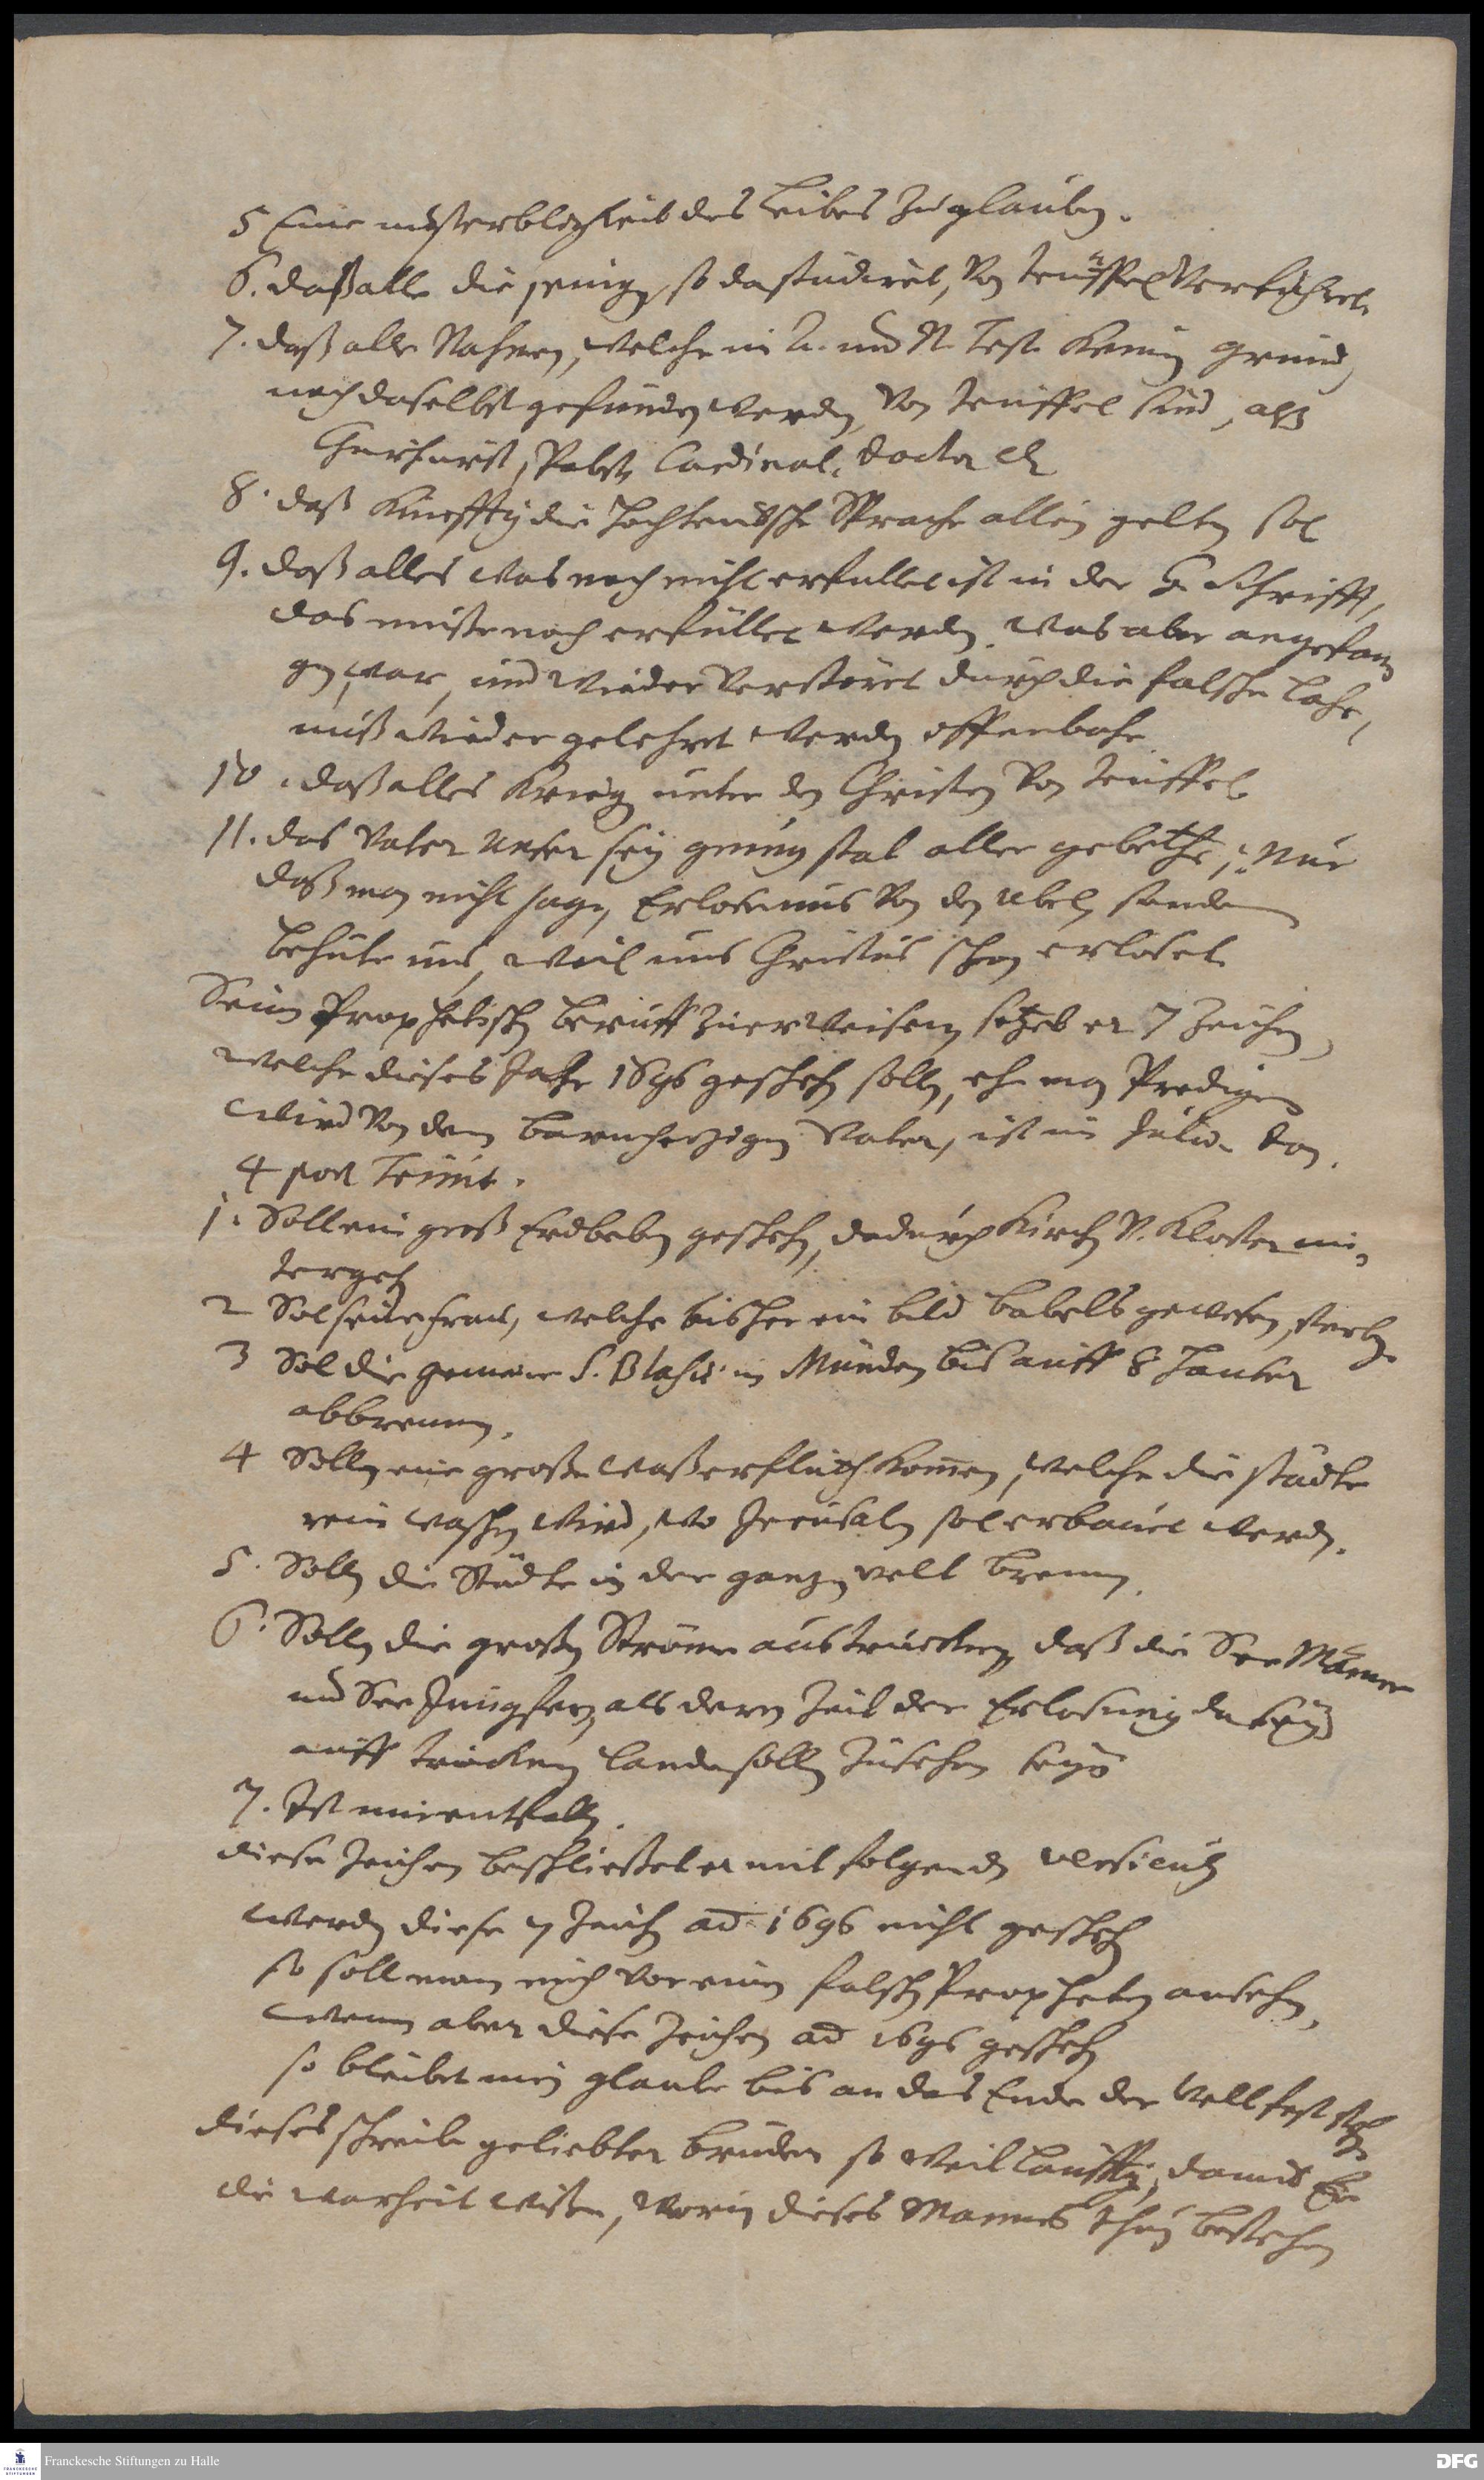 5 Eine unsterbligkeit des Leibes zu glauben.
6. daß alle die jenige, so da studiret, von teuffel verführet.
7. daß alle Nahmen, welche in A. und N. Test. keinen grund,
noch daselbst gefunden werden, von teuffel sind, alß
Churfürst, Pabst, Cardinal, doctor etc
8. daß künfftig die hochteutsche Sprache allein gelten sol
9. daß alles was noch nicht erfullet ist in der H. Schrifft,
das müste noch erfüllet werden. was aber angefan
gen war, und wieder verstöret durch die falsche Lehr,
muß wieder gelehret werden offenbahr
10. daß alles krieg unter den Christen von teuffel
11. das Vater unser sey genug stat aller gebethe; nur
daß man nicht sage, Erlöse uns von den ubel, sondern
behüte uns, weil uns Christus schon erlöset.
Seinen Prophetischen beruff zu erweisen, setzet er 7 Zeichen,
welche dieses Jahr 1696 geschehen sollen, ehe man Predigen
wird von dem barmherzigen Vater, ist in Julio Dom.
4 post Trinit.
1. Soll ein groß Erdbeben geschehen, dadurch Kirchen v. Kloster un-
tergehen
2 Sol seine Frau, welche bisher ein bild babels gewesen, sterben.
3 Sol die gemeine S. Blasii in Münden bis auff 8 häuser
abbrennen.
4 Sollen eine große waßerfluth kommen, welche die städte
rein waschen wird, wo Jerusalem sol erbauet werden.
5. Sollen die Städte in der ganzen welt brennen.
6. Sollen die großen Ströme austrucknen, daß die See Männer
und See Jungfern, als deren Zeit der Erlösung da sey
auff trucken lande sollen zusehen seyn
7. Ist mir entfallen.
diese Zeichen beschließet er mit folgenden versiculn
werden diese 7 Zeichen ad 1696 nicht geschehen
so soll man mich vor einen falschen Propheten ansehen,
wenn aber diese Zeichen ad 1696 geschehen
so bleibet mein glaube bis an das Ende der welt fest stehen
dieses schreibe geliebter bruder so weitläufftig, damit Er
die warheit wiße, worin dieses Mannes thun bestehe
Franckesche Stiftungen zu Halle
DFG